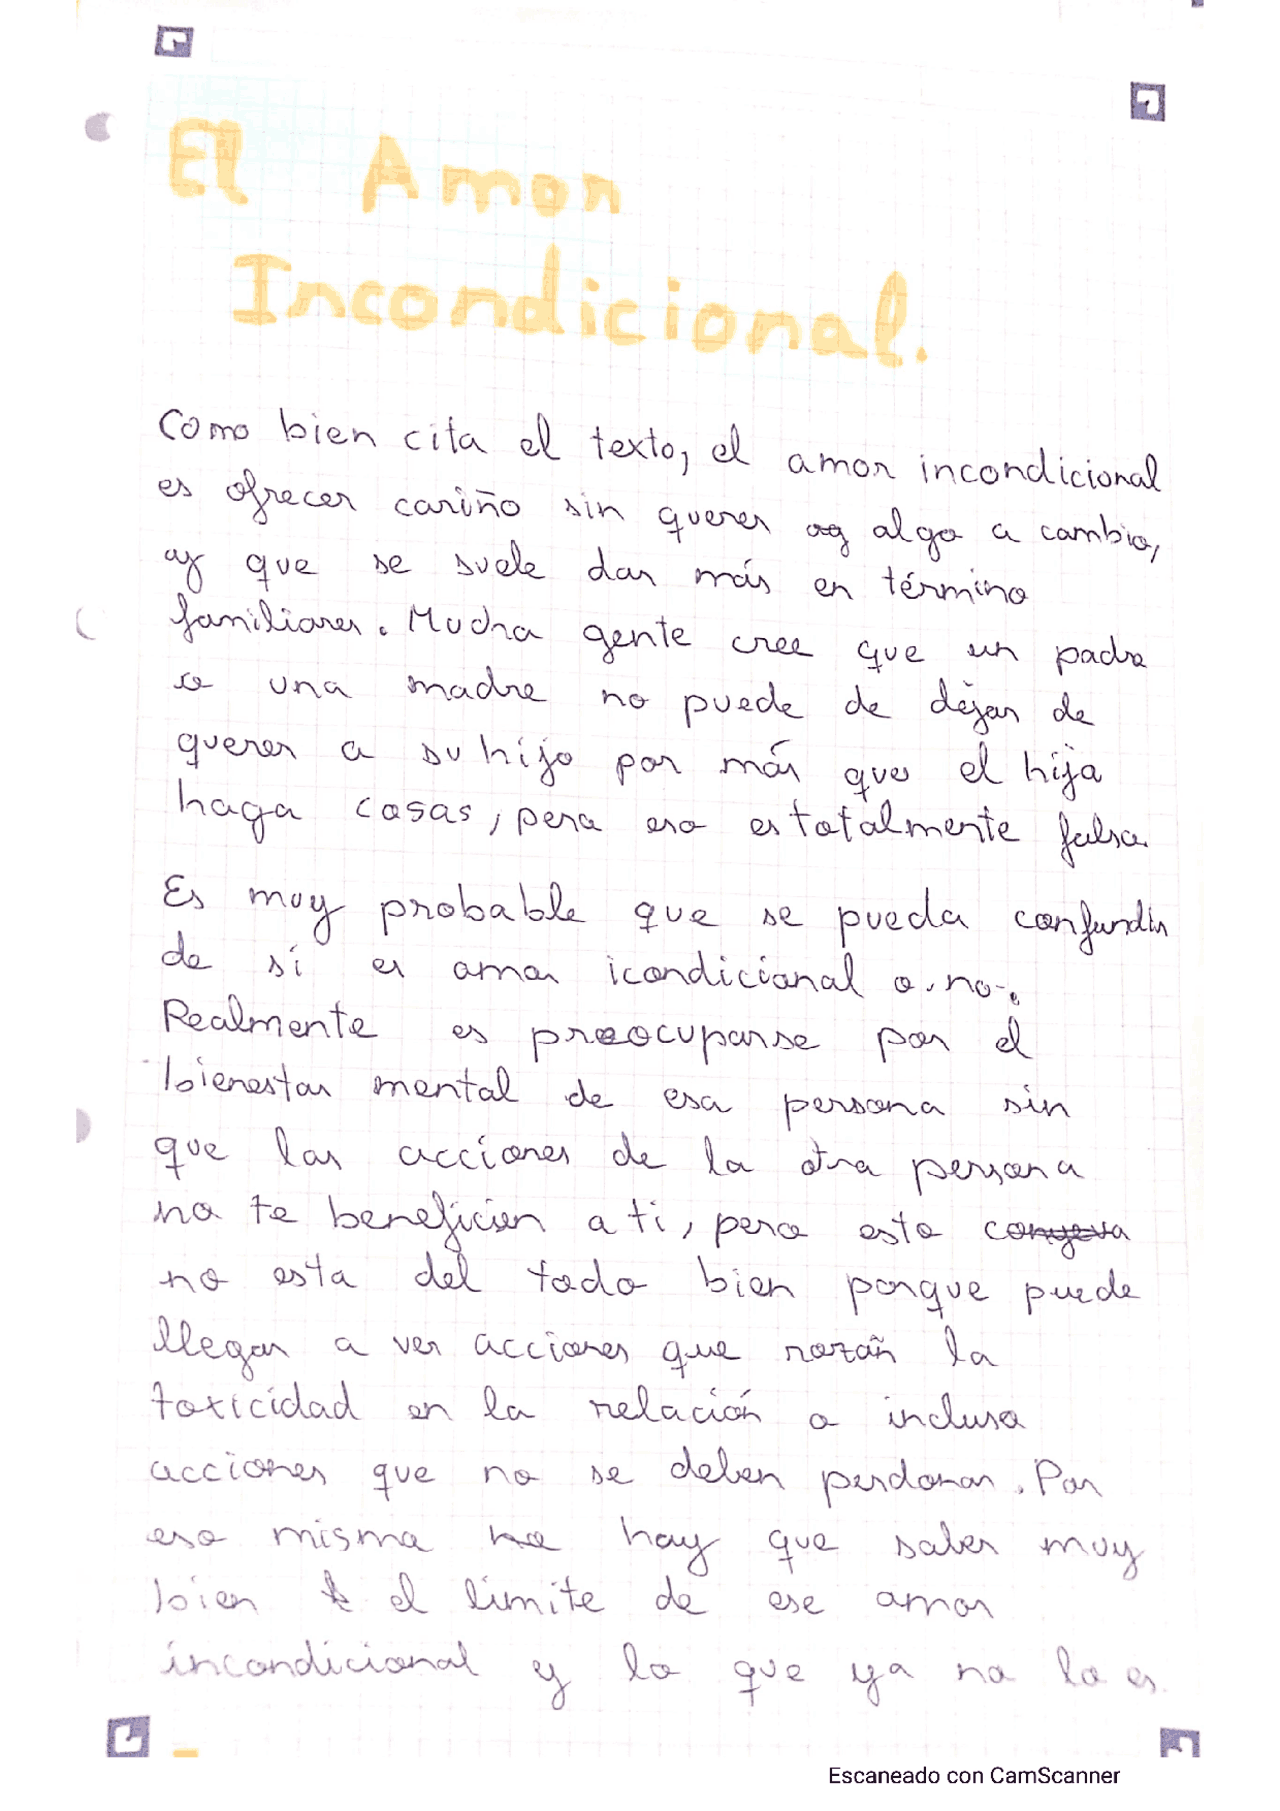 El Amor
Incondicional.
Como bien cita el texto, el amor incondicional
es ofrecer cariño sin querer algo a cambio,
y que se suele dar más en término
familiares. Mucha gente cree que un padre
o una madre no puede de dejar de
querer a su hijo por más que el hijo
haga cosas, pero eso es totalmente falso.
Es muy probable que se pueda confundir
de sí es amor icondicional o no.
Realmente es preocuparse por el
bienestar mental de esa persona sin
que las acciones de la otra persona
no te beneficien a ti, pero esto conyeva
no esta del todo bien porque puede
llegar a ver acciones que rozan la
toxicidad en la relación o incluso
acciones que no se deben perdonar. Por
eso mismo no hay que saber muy
bien el límite de ese amor
incondicional y lo que ya no lo es.
Escaneado con CamScanner